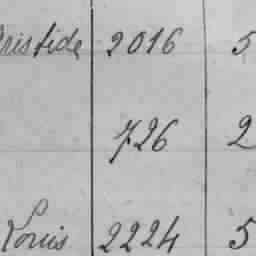 Aristide 2016 5
726 2
Louis 2224 5